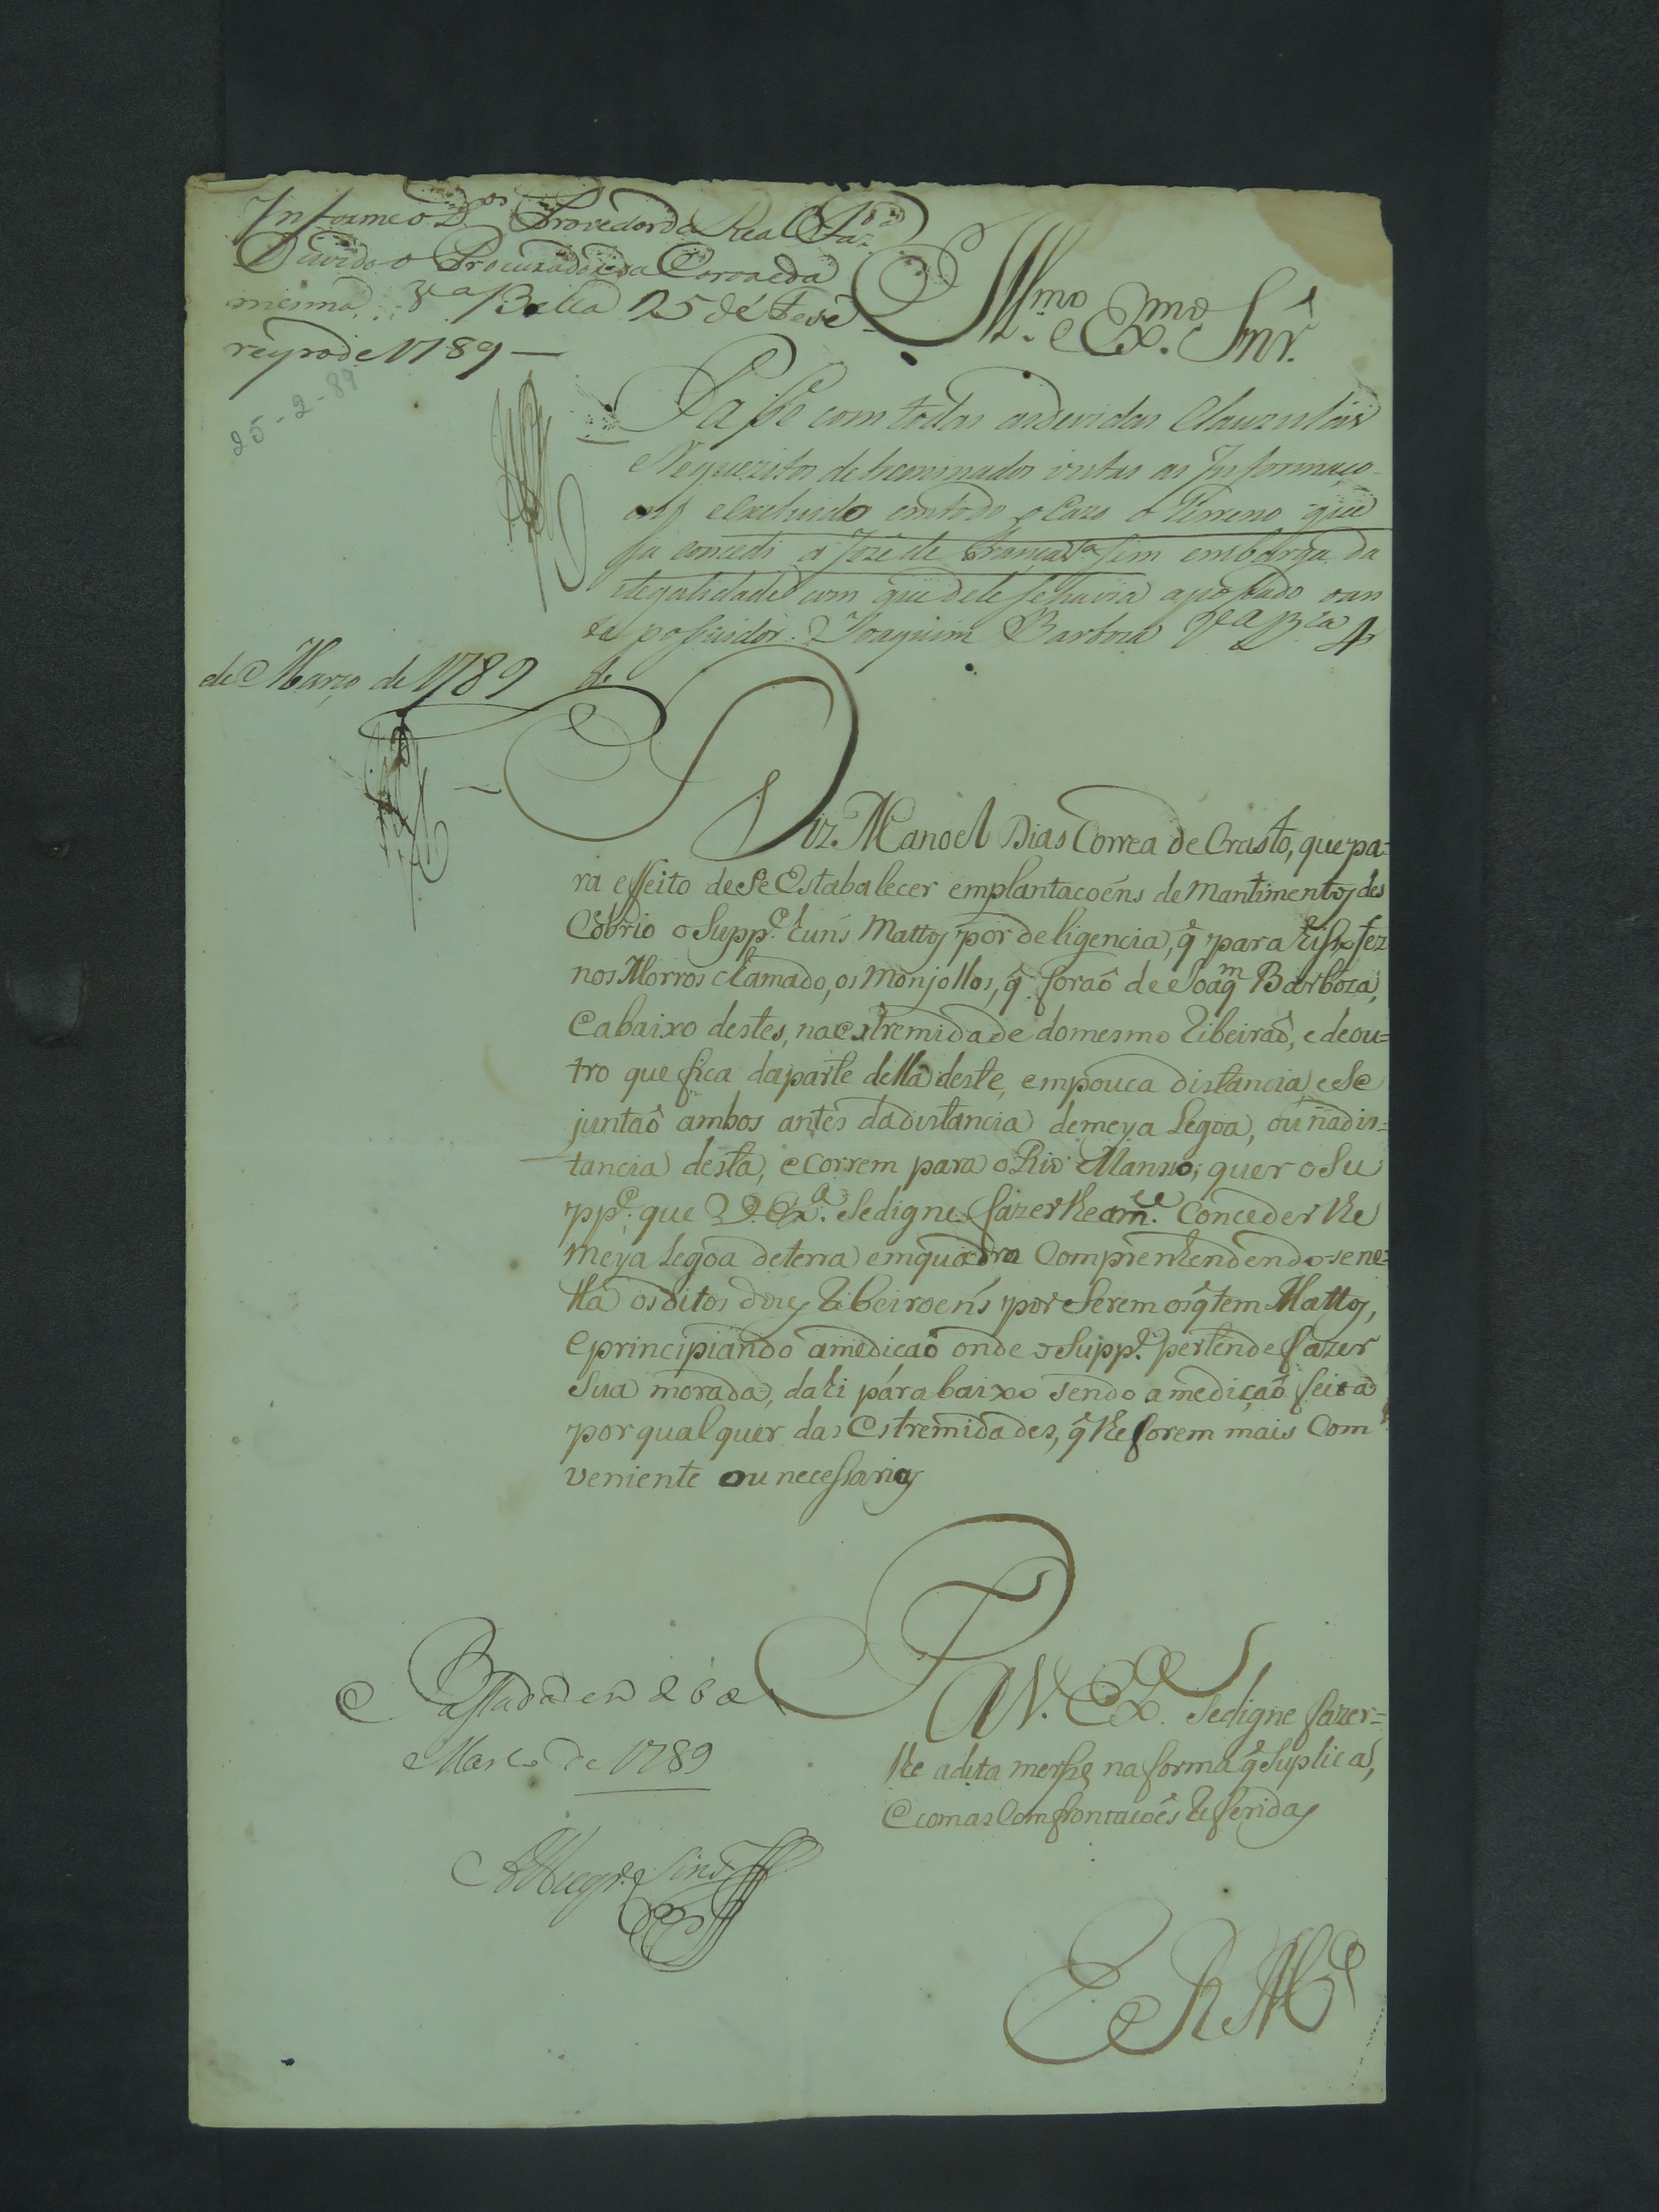 Informe o D.os Provedor da Real Faz.da
Ouvido o Procurador da Coroa e da
mesma. V.a Bella 25 de Feve-
reyro de 1789 —
25-2-89
Ill.mo e Ex.mo Snr.
Passe com todas as devidas Clauzulas
e Requezitos detreminados vistas as Informaço-
ens e excluido em todo o cazo o Terreno que
ja concedi a Jozé de França sem embargo da
ilegalidade com que dele se havia apossado o an
te possuidor Joaquim Barboza V.a B.a 4
de
de Março de 1789
Diz Manoel Dias Correa de Crasto, que pa-
ra effeito de se Estabalecer em plantacoéns de Mantimentos des
Cobrio o Supp.e huns Mattos por deligencia, q̃ para isso fez
nos Morros chamado, os Monjollos, q̃ foraõ de Joaq.m Barboza,
e abaixo destes, na extremidade do mesmo Ribeiraõ, e de ou-
tro que fica da parte de lla deste, em pouca distancia, e se
juntaõ ambos antes da distancia de meya Legoa, ou na dis-
tancia desta, e correm para o Rio Manso; quer o Su
pp.e que V. Ex.a Se digne fazer lhe a m.ce Conceder lhe
meya Legoa de terra em quadra Comprenhendendo-se ne-
lla os ditos dois Ribeiroens por Serem os q̃ tem Mattos,
e principiando a mediçaõ onde o Supp.e pertende fazer
Sua morada, dahi pára baixo sendo a mediçaõ feita
por qual quer das Estremidades, q̃ lhe forem mais Com
veniente ou necessarios
P
A V. Ex.a Se digne fazer-
lhe a dita merse na forma q̃ Suplica,
e com as Comfrontacoẽs Referidas
Passada em 26 de
Março de 1789
E R M.ce